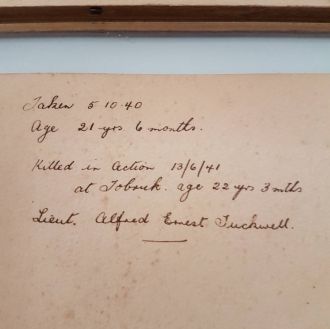 Taken 5 10.40
Age 21 yrs 6 months.
Killed in Action 13/6/41
at Tobruk. age 22 yrs 3 mths
Lieut. Alfred Ernest Tuckwell.